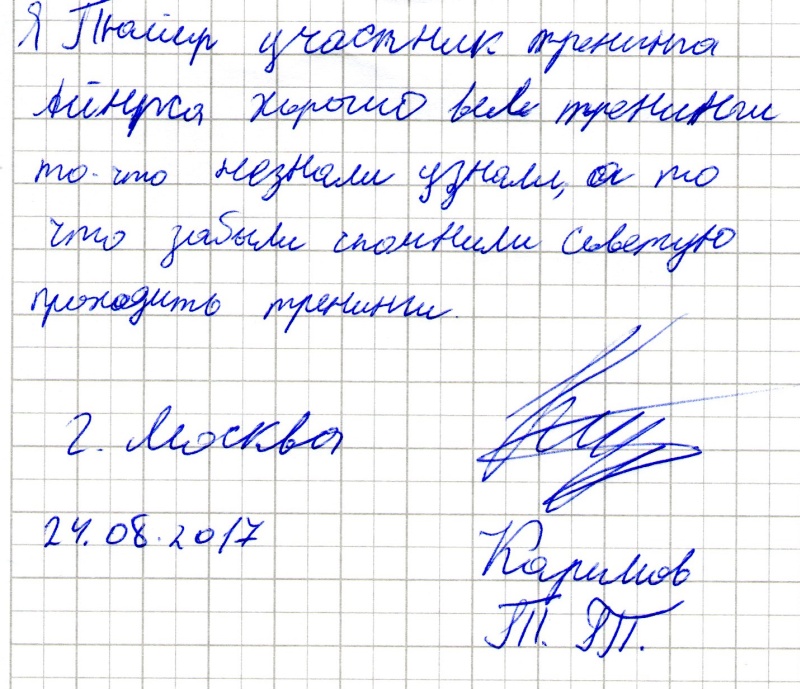 Я участник тренинга
хорошо вела тренинги
то что незнали узнали, а то
что забыли спомнили советую
проходить тренинги.
г. Москва
24.08.2017
Каримов